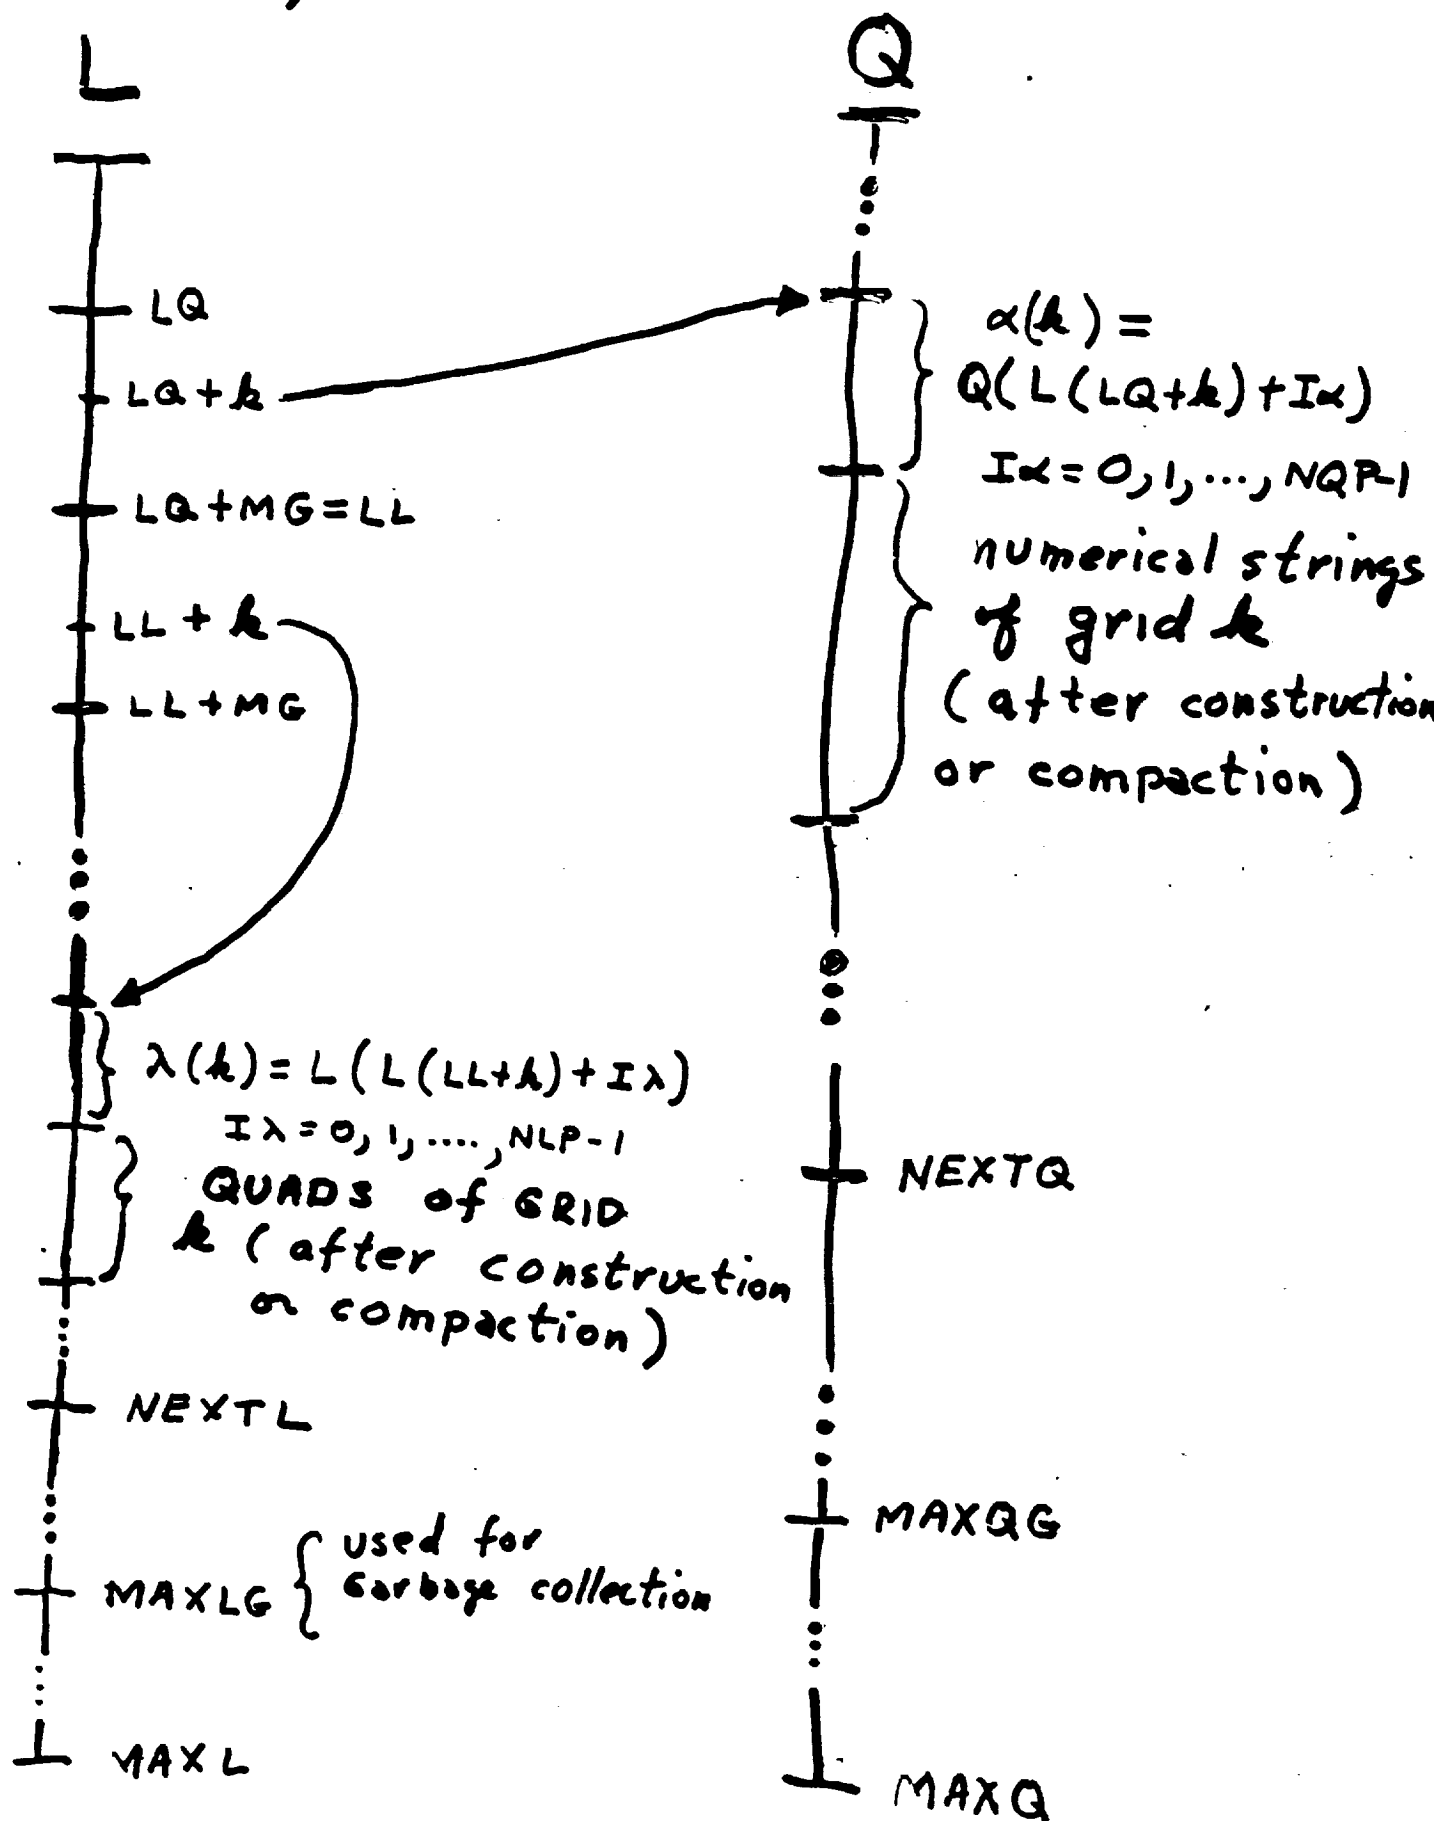 L
LQ
LQ+k
LQ+MG=LL
LL+k
LL+MG
λ(k)=L(L(LL+k)+Iλ)
Iλ=0,1,....,NLP-1
QUADS of GRID
k (after construction
or compaction)
NEXTL
MAXLG { used for
Garbage collection
MAXL
Q
α(k)=
Q(L(LQ+k)+Iα)
Iα=0,1,...,NQP-1
numerical strings
of grid k
(after construction
or compaction)
NEXTQ
MAXQG
MAXQ